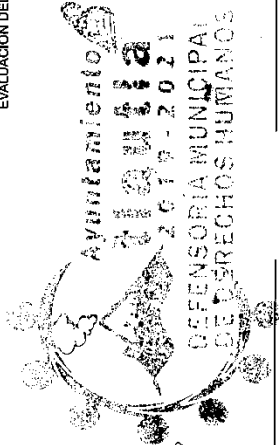 EVALUACIÓN DEL
Ayuntamiento
Atlautla
2019-2021
DEFENSORIA MUNICIPAL
DE DERECHOS HUMANOS